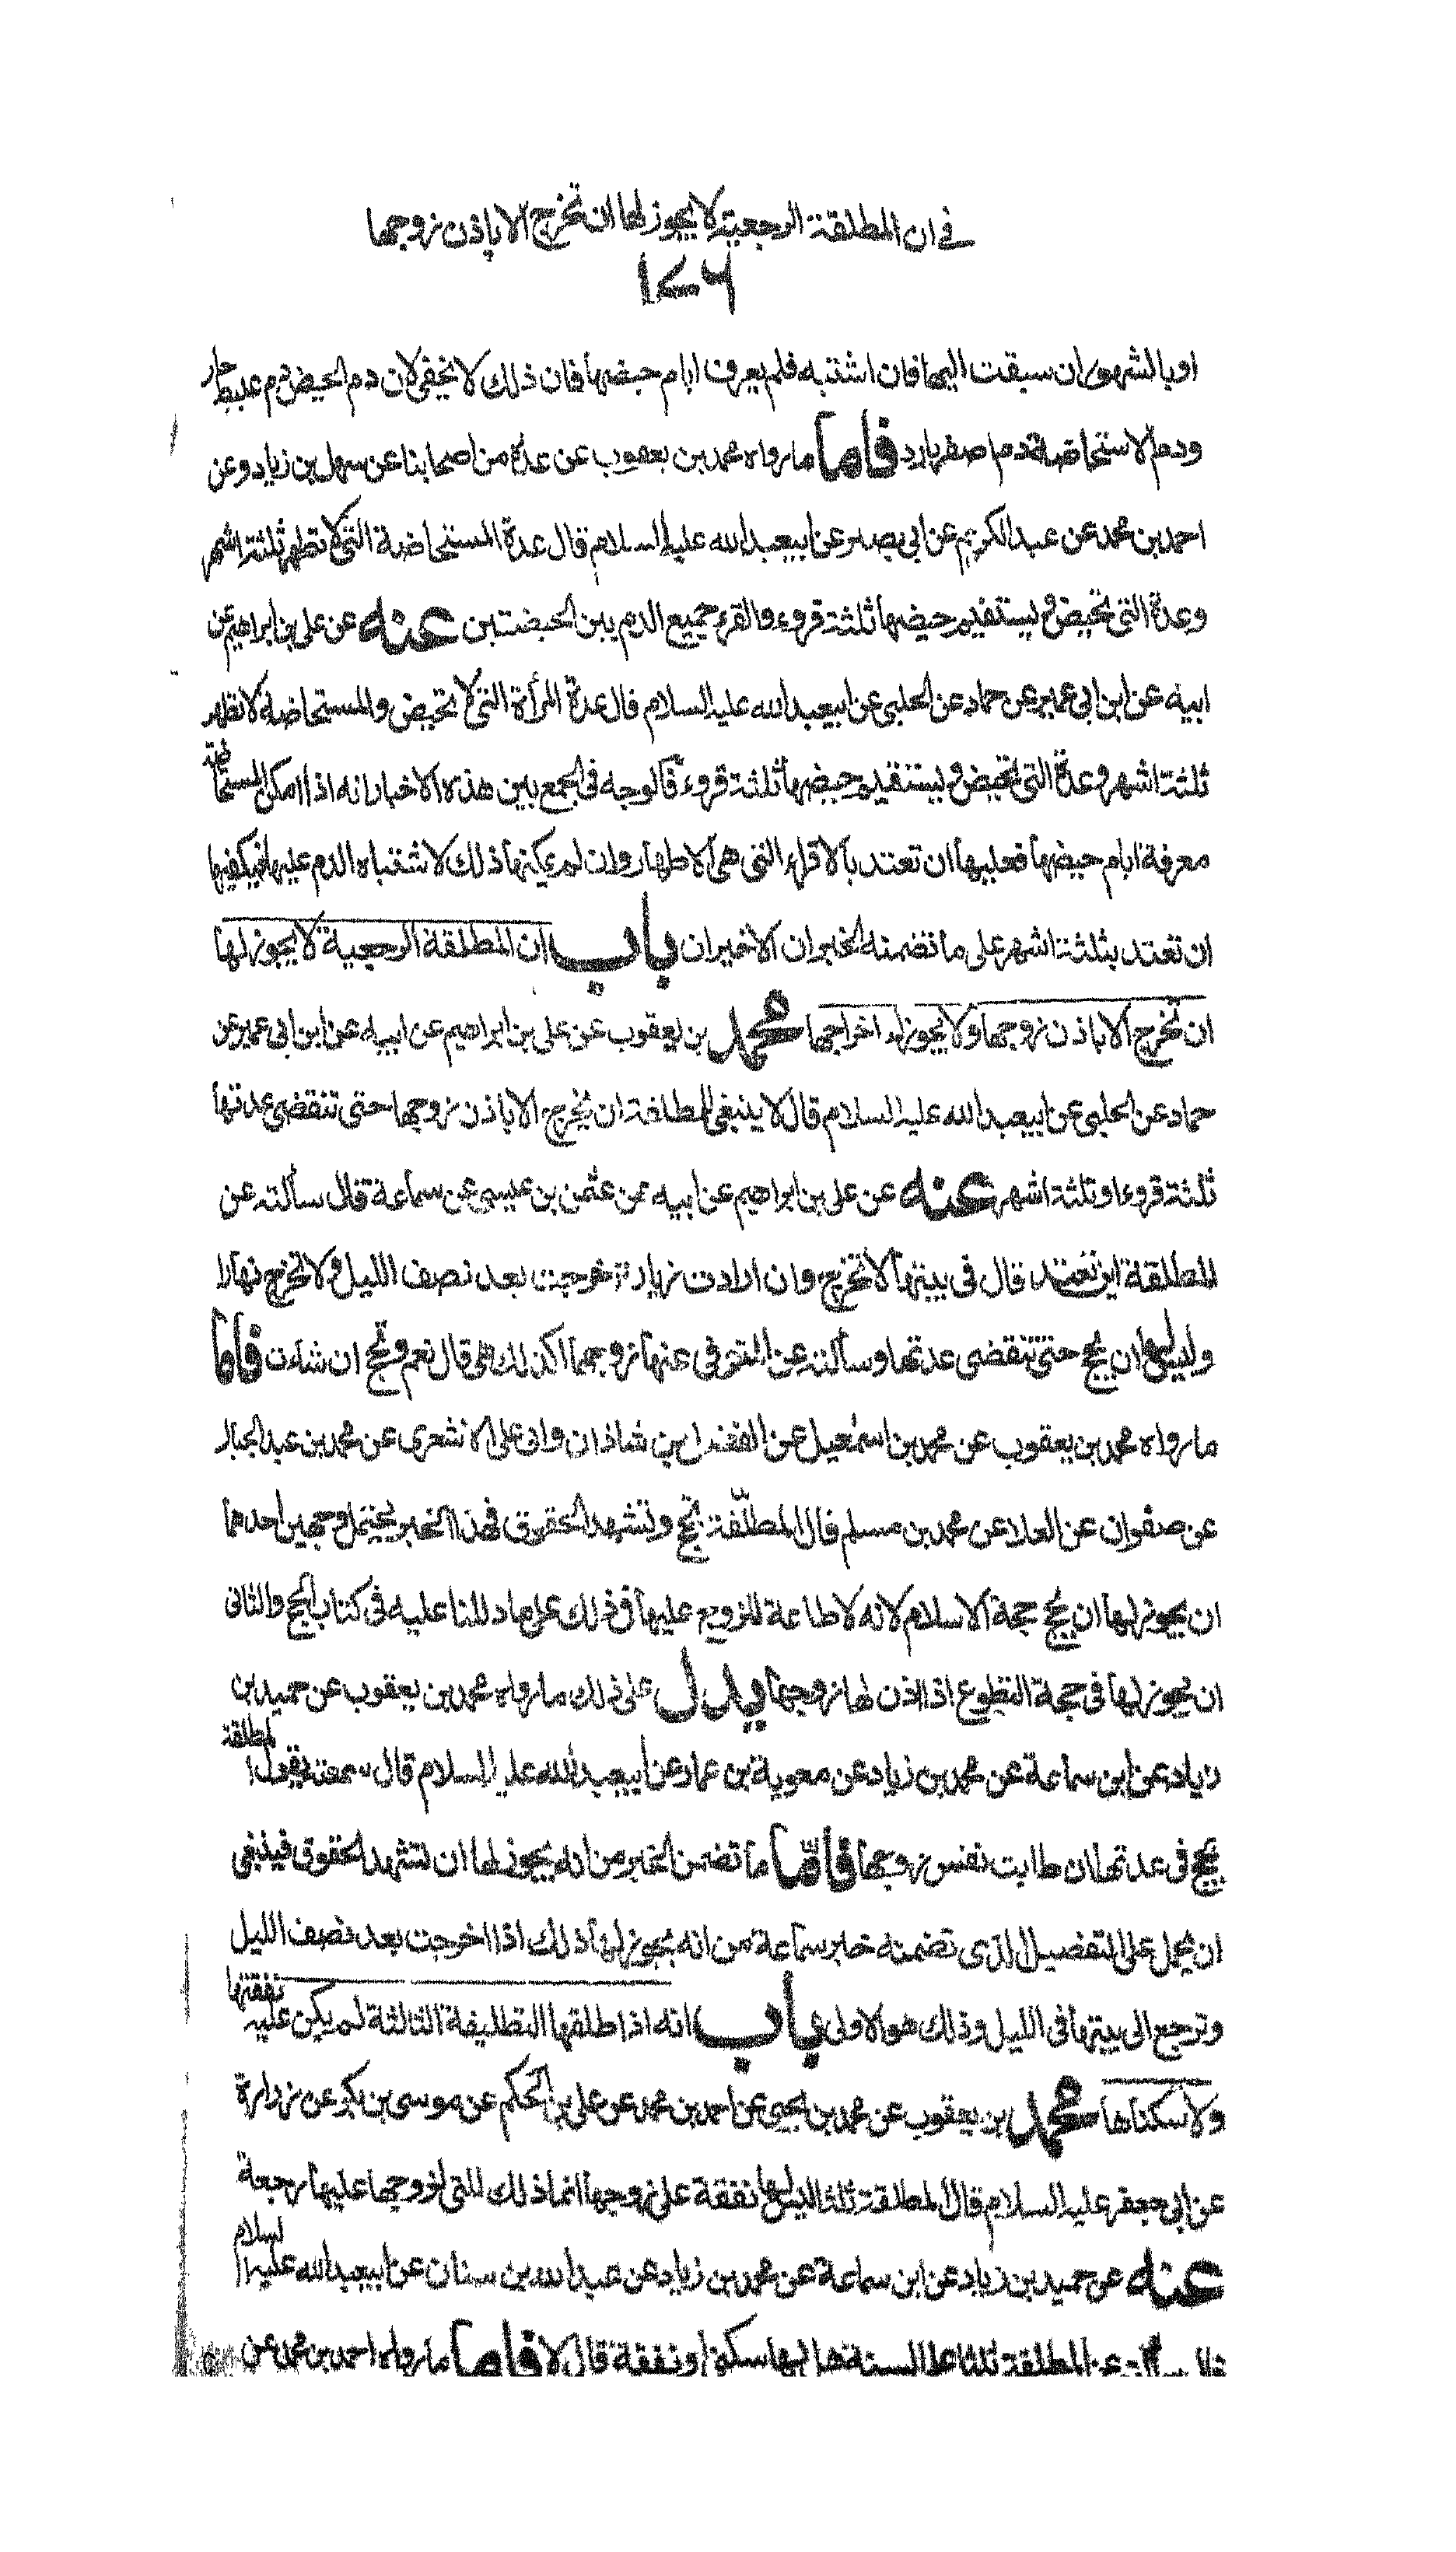 في ان المطلقة الرجعية لا يجوز لها ان تخرج الا باذن زوجها
١٧٦
او بالشهور ان سبقت اليها فان اشتبه فلم يعرف ايام حيضها فان ذلك لا يخفى لان دم الحيض دم عبيط حار
ودم الاستحاضة دم اصفر بارد فاما ما رواه محمد بن يعقوب عن عدة من اصحابنا عن سهل بن زياد وعن
احمد بن محمد عن عبد الكريم عن ابي بصير عن ابيعبد الله عليه السلام قال عدة المستحاضة التي لا تطهر ثلثة اشهر
وعدة التي تحيض ويستقيم حيضها ثلثة قروء والقرء جميع الدم بين الحيضتين عنه عن علي بن ابراهيم عن
ابيه عن ابن ابي عمير عن حماد عن الحلبي عن ابيعبد الله عليه السلام قال عدة المرأة التي لا تحيض والمستحاضة لا تطهر
ثلثة اشهر وعدة التي تحيض ويستقيم حيضها ثلثة قروء فالوجه في الجمع بين هذه الاخبار انه اذا امكن المستحاضة
معرفة ايام حيضها فعليها ان تعتد بالاقراء التي هي الاطهار وان لم يمكنها ذلك لاشتباه الدم عليها فيكفيها
ان تعتد بثلثة اشهر على ما تضمنه الخبران الاخيران باب ان المطلقة الرجعية لا يجوز لها
ان تخرج الا باذن زوجها ولا يجوز له اخراجها محمد بن يعقوب عن علي بن ابراهيم عن ابيه عن ابن ابي عمير عن
حماد عن الحلبي عن ابيعبد الله عليه السلام قال لا ينبغي للمطلقة ان تخرج الا باذن زوجها حتى تنقضي عدتها
ثلثة قروء او ثلثة اشهر عنه عن علي بن ابراهيم عن ابيه عن عثمن بن عيسى عن سماعة قال سألته عن
المطلقة اين تعتد قال في بيتها لا تخرج وان ارادت زيارة خرجت بعد نصف الليل ولا تخرج نهارا
وليس لها ان تحج حتى تنقضي عدتها وسألته عن المتوفى عنها زوجها اكذلك هي قال نعم وتحج ان شاءت فاما
ما رواه محمد بن يعقوب عن محمد بن اسمعيل عن الفضل بن شاذان وابي علي الاشعري عن محمد بن عبد الجبار
عن صفوان عن العلا عن محمد بن مسلم قال المطلقة تحج وتشهد الحقوق فهذا الخبر يحتمل وجهين احدهما
ان يجوز لها ان تحج حجة الاسلام لانه لا طاعة للزوج عليها في ذلك على ما دللنا عليه في كتاب الحج والثاني
ان يجوز لها في حجة التطوع اذا اذن لها زوجها يدل على ذلك ما رواه محمد بن يعقوب عن حميد بن
زياد عن ابن سماعة عن محمد بن زياد عن معوية بن عمار عن ابيعبد الله عليه السلام قال سمعته يقول المطلقة
تحج في عدتها ان طابت نفس زوجها فاما ما تضمن الخبر من انه يجوز لها ان تشهد الحقوق فينبغي
ان يحمل على التفصيل الذي تضمنه خبر سماعة من انه يجوز لها ذلك اذا خرجت بعد نصف الليل
وترجع الى بيتها في الليل وذلك هو الاولى باب انه اذا طلقها التطليقة الثالثة لم يكن عليه نفقتها
ولا سكناها محمد بن يعقوب عن محمد بن يحيى عن احمد بن محمد عن علي بن الحكم عن موسى بن بكر عن زرارة
عن ابي جعفر عليه السلام قال المطلقة ثلثا ليس لها نفقة على زوجها انما ذلك للتي لزوجها عليها رجعة
عنه عن حميد بن زياد عن ابن سماعة عن محمد بن زياد عن عبد الله بن سنان عن ابيعبد الله عليه السلام
قال سألته عن المطلقة ثلثا على السنة هل لها سكنى او نفقة قال لا فاما ما رواه احمد بن محمد عن